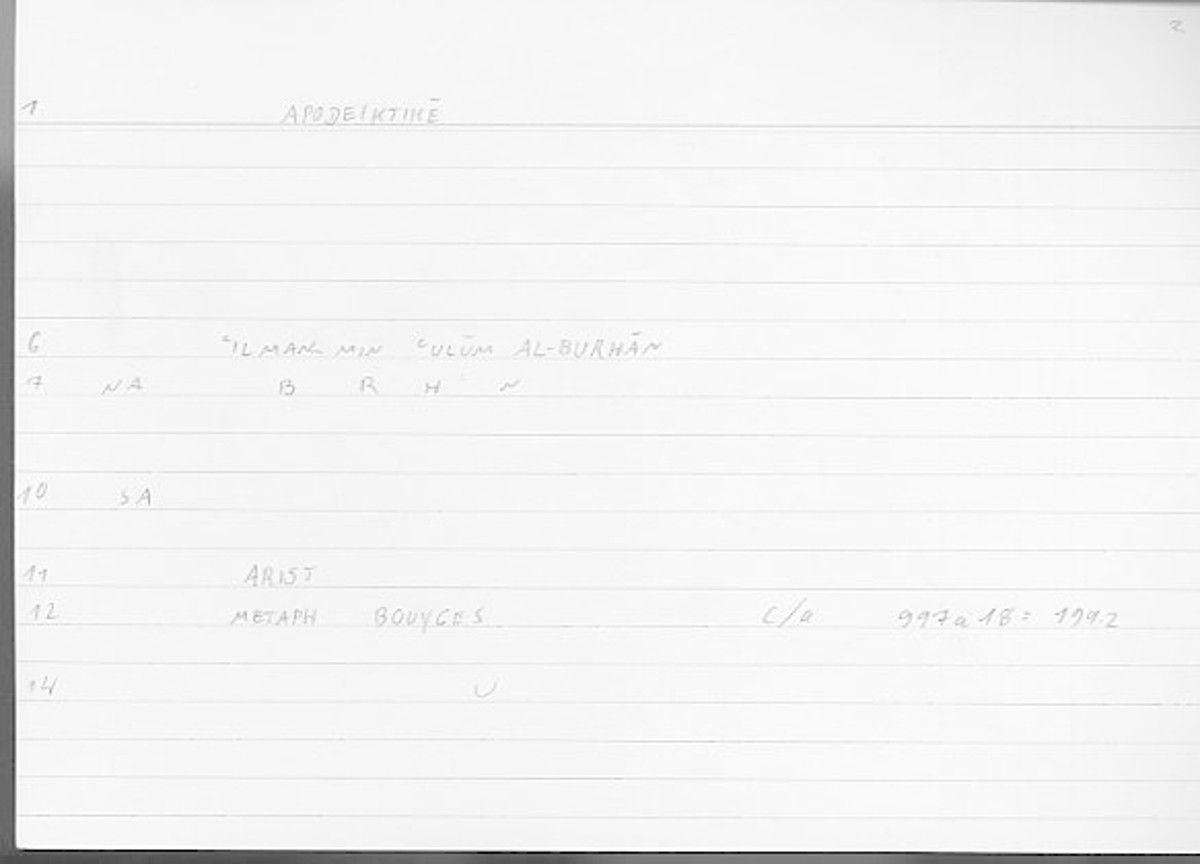 2
1 APODEIKTIKĒ
6 ʿILMAN MIN ʿULŪM AL-BURHĀN
7 NA B R H N
10 SA
11 ARIST
12 METAPH BOUYGES C/a 997a18= 199.2
14 U